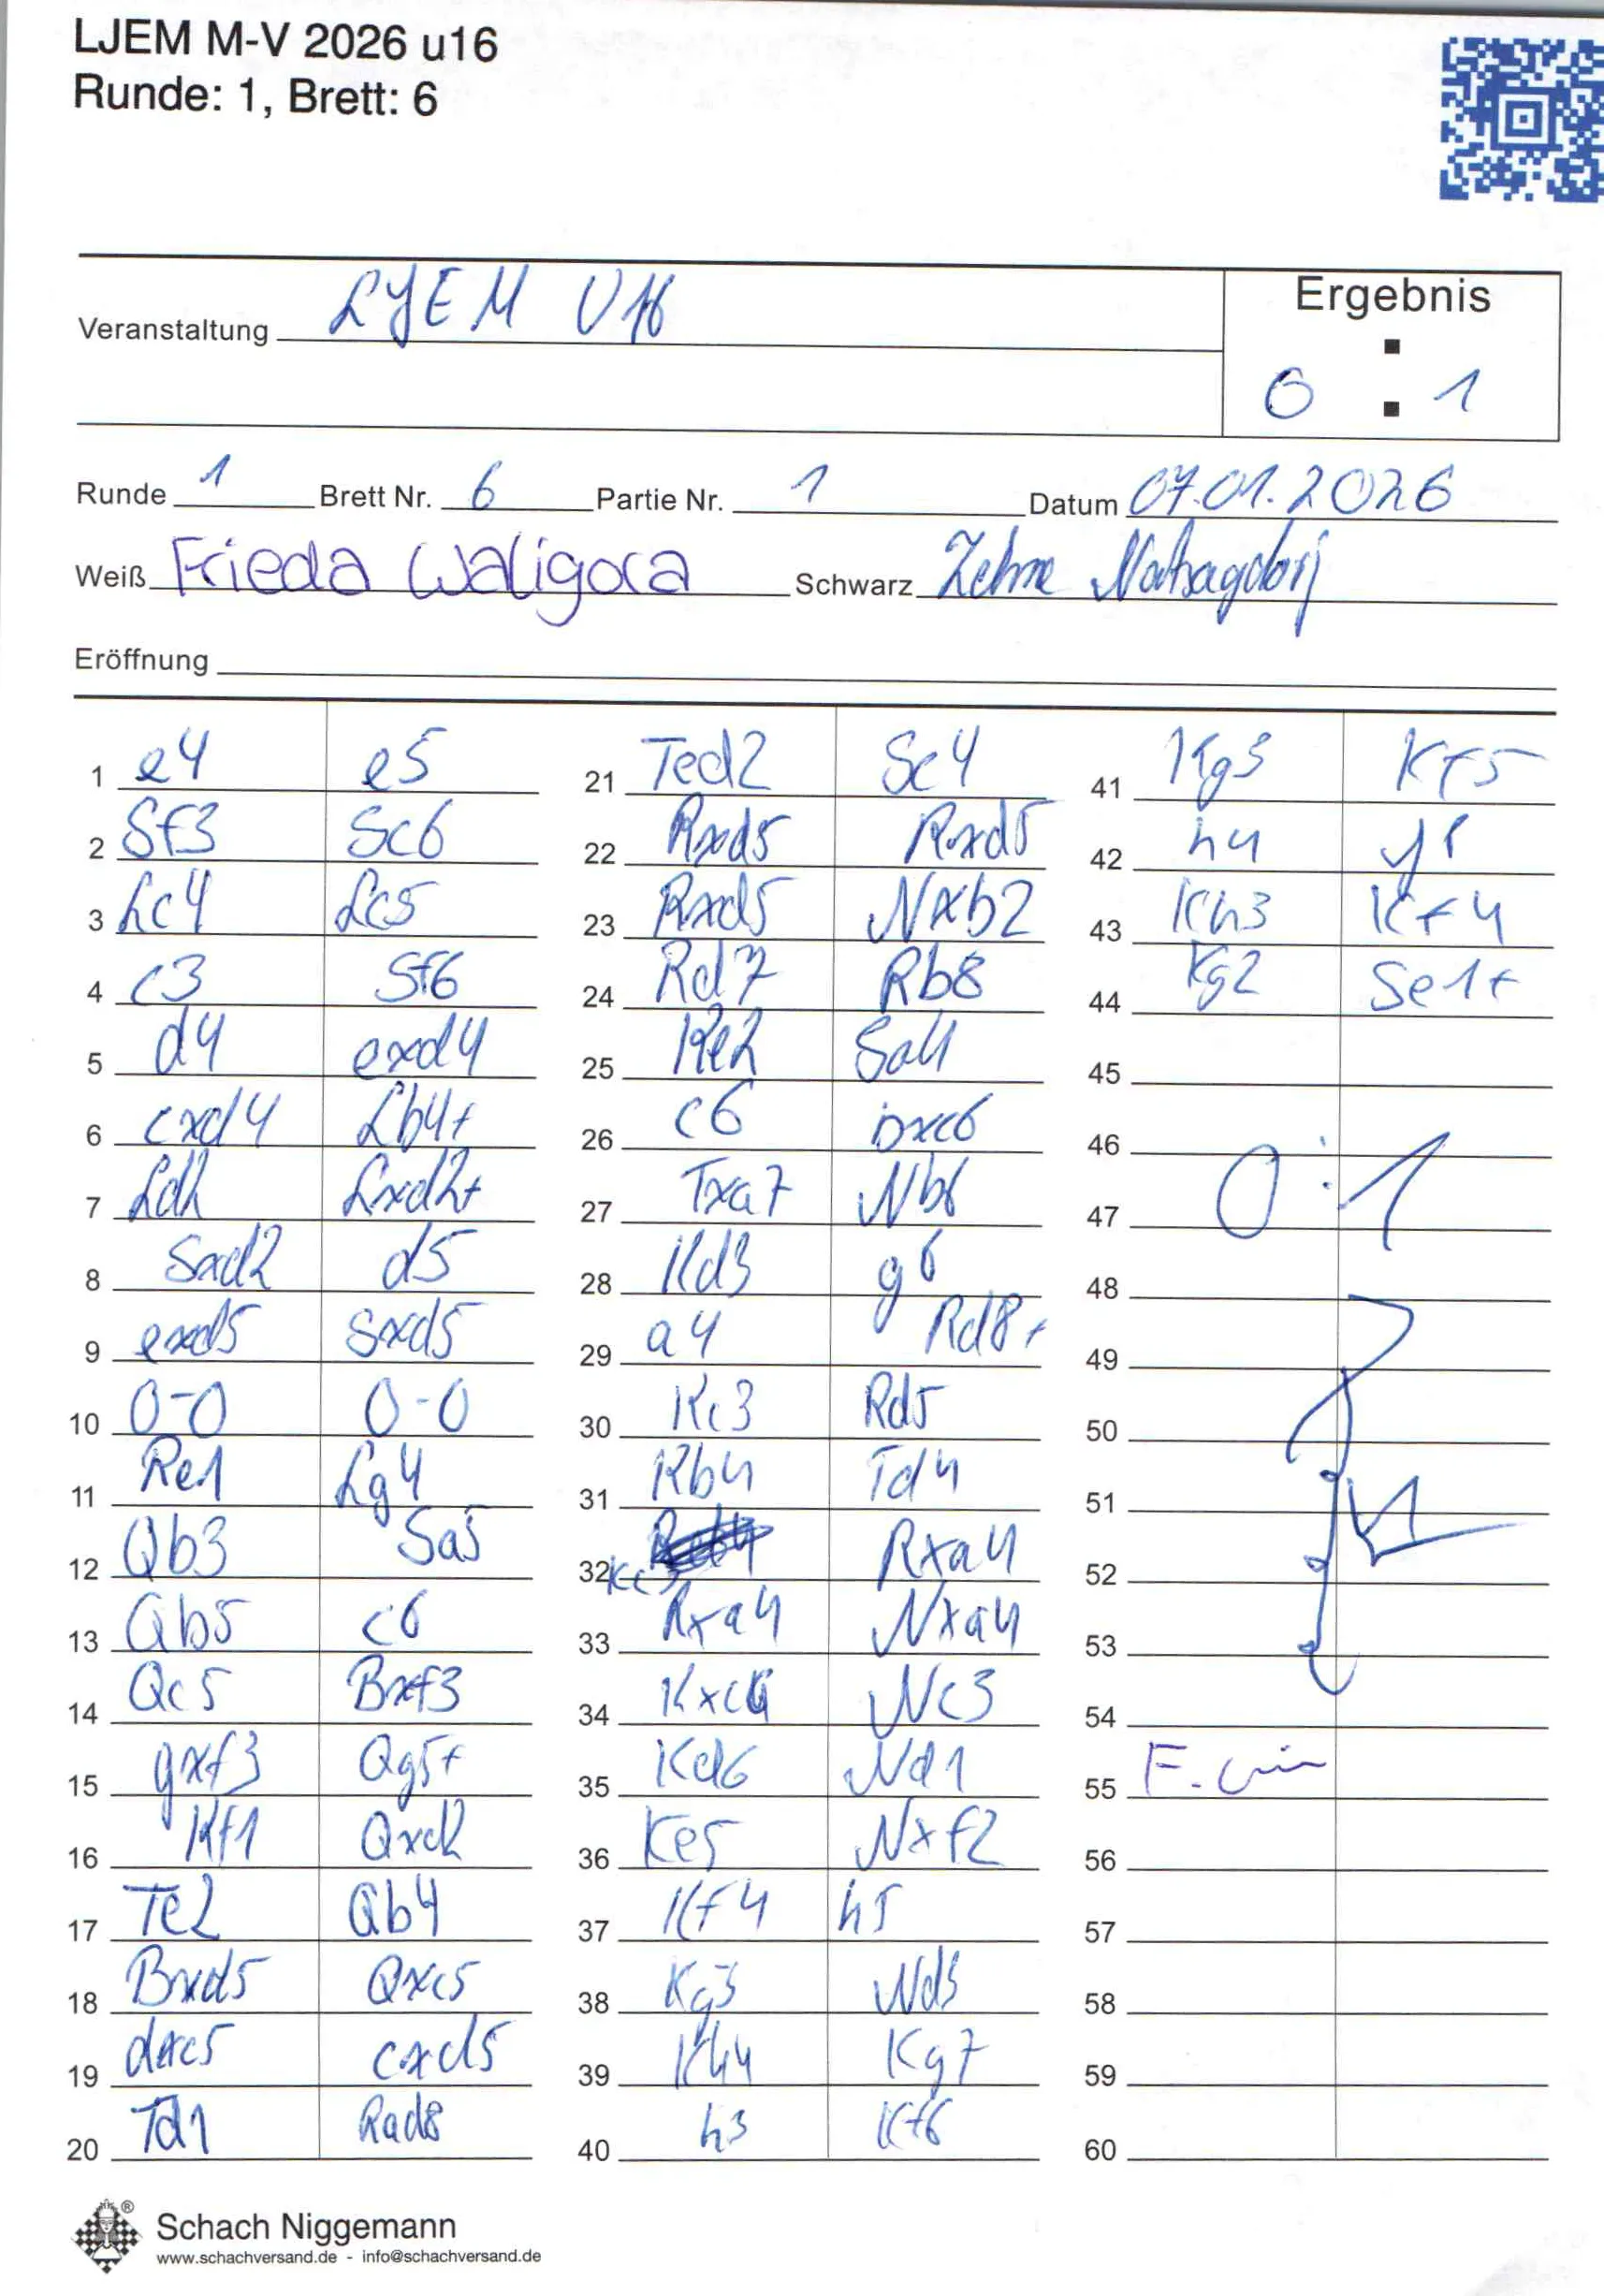 LJEM M-V 2026 u16
Runde: 1, Brett: 6
Veranstaltung LJEM U16
Ergebnis
0 : 1
Runde 1 Brett Nr. 6 Partie Nr. 1 Datum 07.01.2026
Weiß Frieda Waligora Schwarz Zehra
Eröffnung
1 e4 e5
2 Sf3 Sc6
3 Lc4 Lc5
4 c3 Sf6
5 d4 exd4
6 cxd4 Lb4+
7 Ld2 Lxd2+
8 Sxd2 d5
9 exd5 Sxd5
10 0-0 0-0
11 Re1 Lg4
12 Qb3 Sa5
13 Qb5 c6
14 Qc5 Bxf3
15 gxf3 Qg5+
16 Kf1 Qxd2
17 Te2 Qb4
18 Bxd5 Qxc5
19 dxc5 cxd5
20 Td1 Rad8
21 Ted2 Sc4
22 Rxd5 Rxd5
23 Rxd5 Nxb2
24 Rd7 Rb8
25 Ke2 Sa4
26 c6 bxc6
27 Txa7 Nb6
28 Kd3 g6
29 a4 Rd8+
30 Kc3 Rd5
31 Kb4 Td4
32 Kc5 Rxa4
33 Rxa4 Nxa4
34 Kxc6 Nc3
35 Kd6 Nd1
36 Ke5 Nxf2
37 Kf4 h5
38 Kg3 Nd3
39 Kh4 Kg7
40 h3 Kf6
41 Kg3 Kf5
42 h4
43 Kh3 Kf4
44 Kg2 Se1+
45
46
47 0:1
48
49
50
51
52
53
54
55
56
57
58
59
60
Schach Niggemann
www.schachversand.de - info@schachversand.de